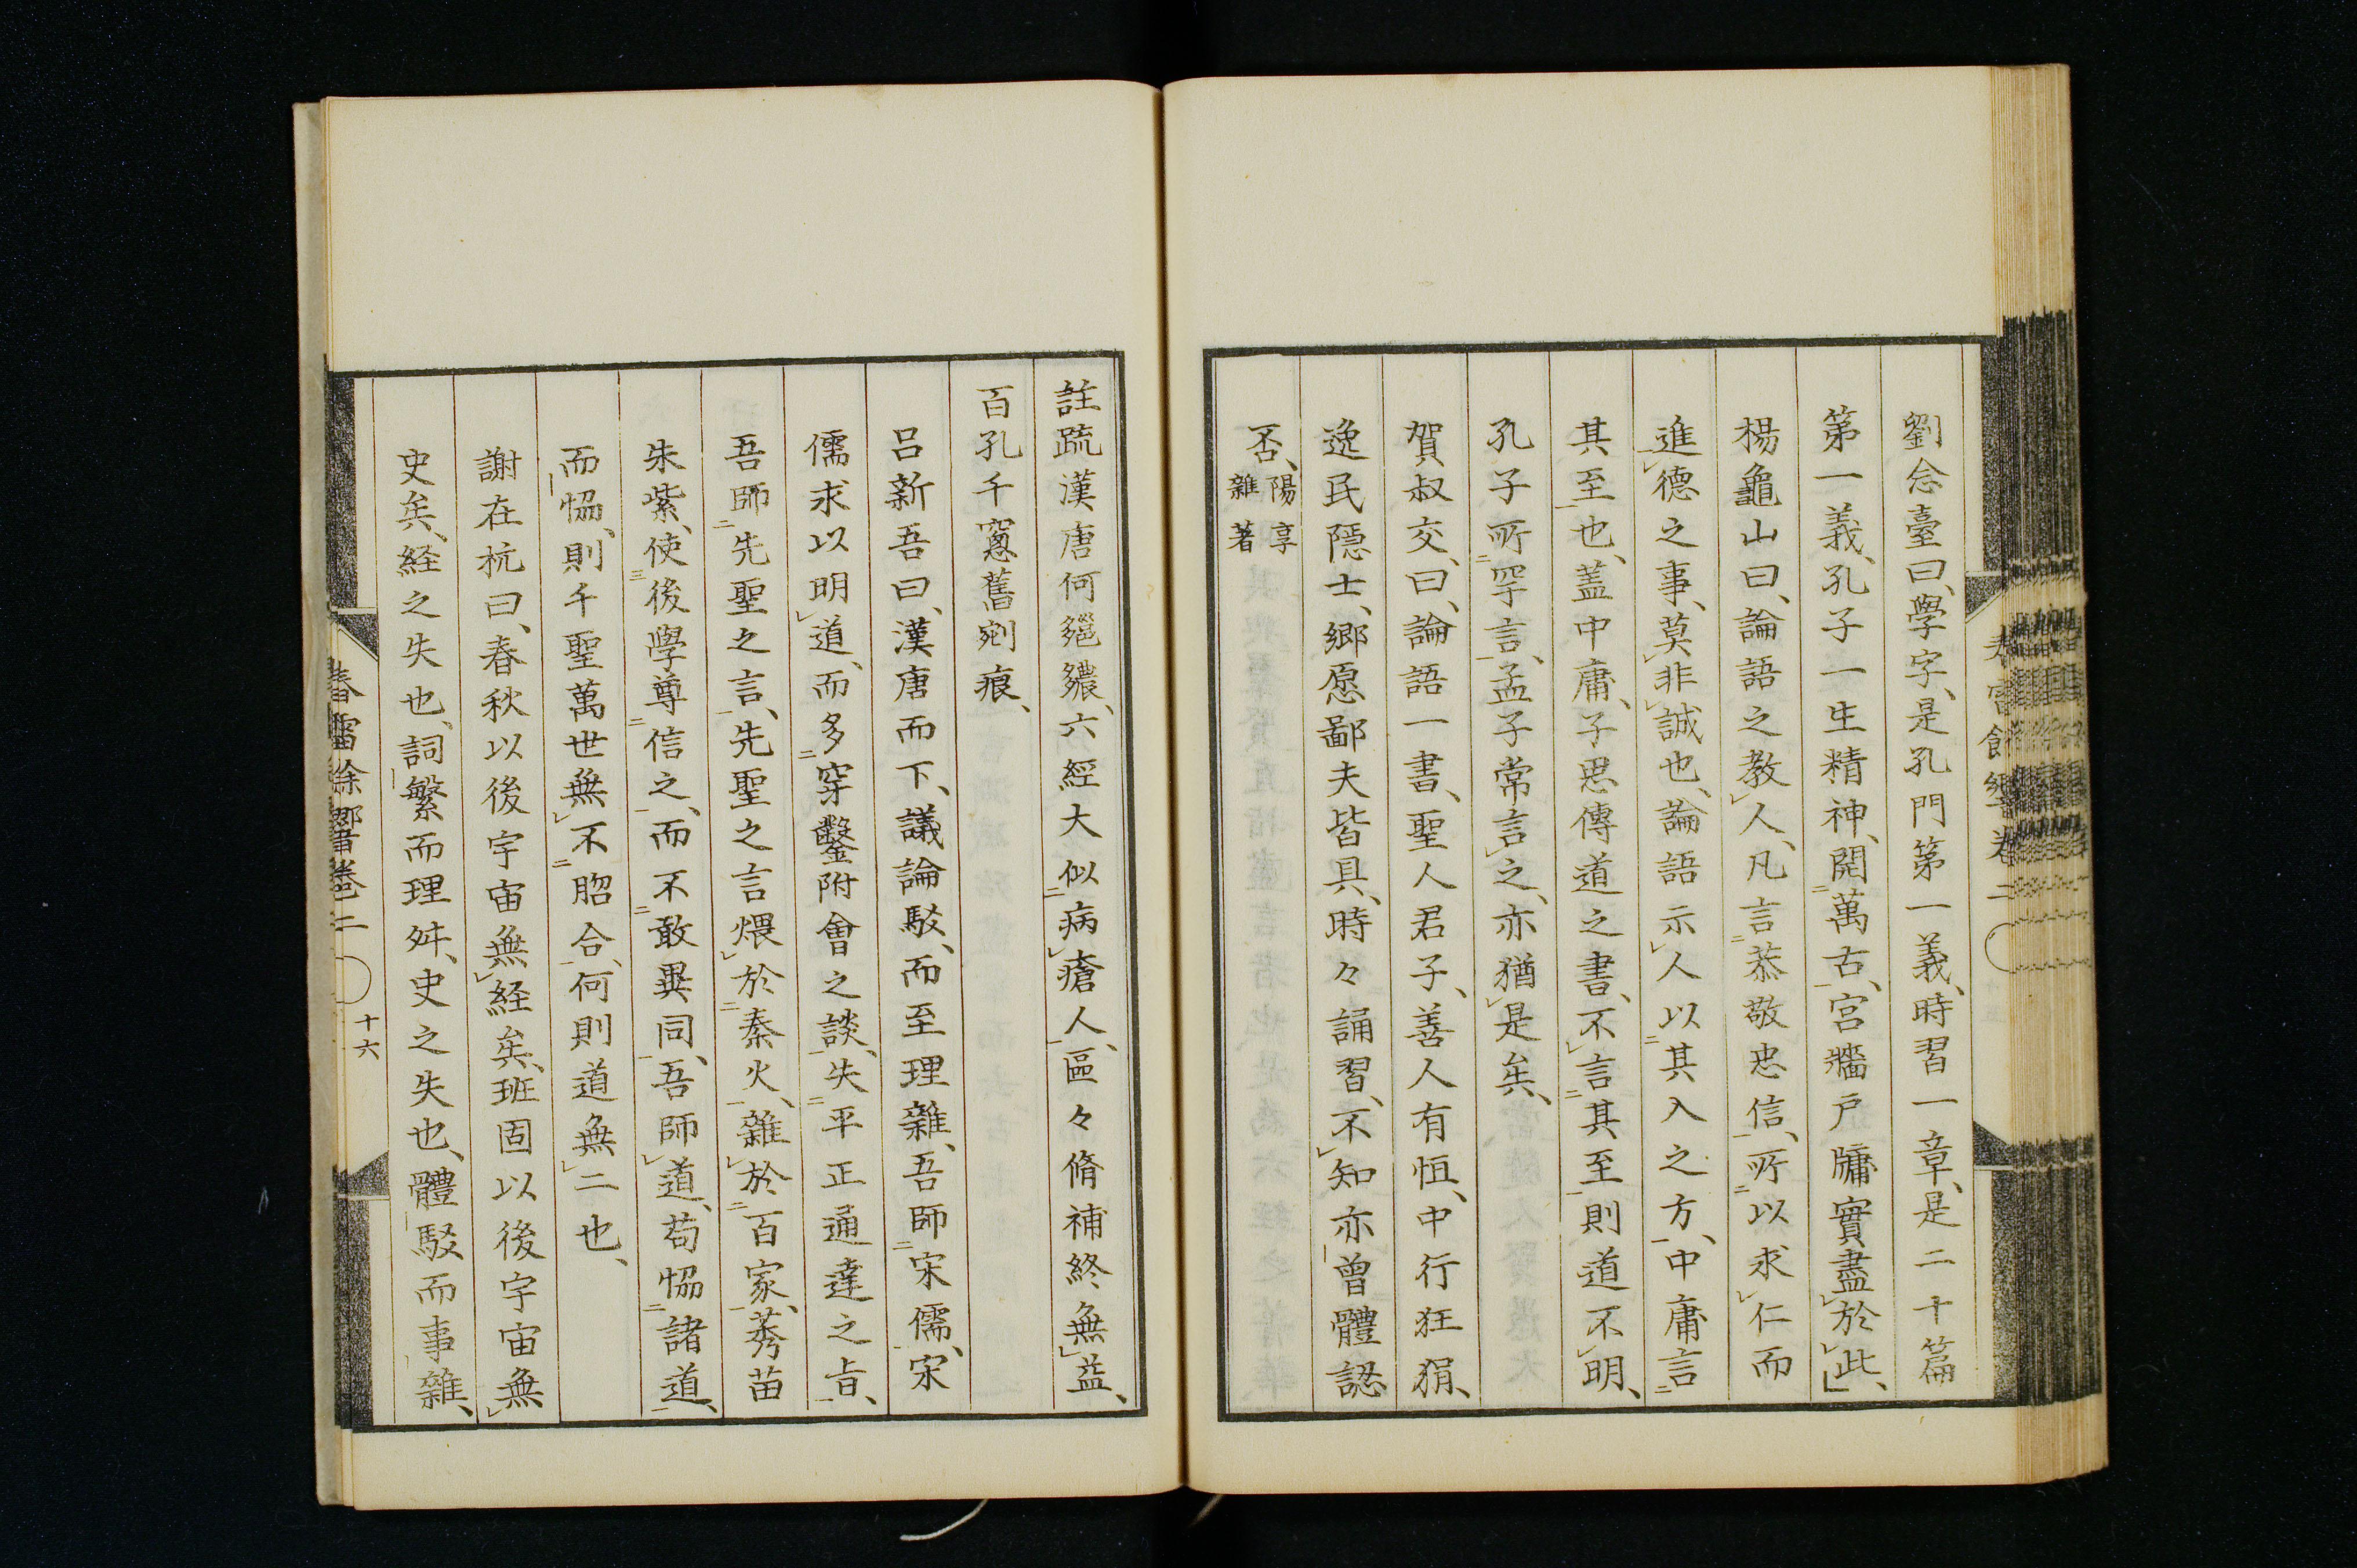 劉念臺曰、學字、是孔門第一義、時習一章、是二十篇
第一義、孔子一生精神、開萬古、宮牆戶牖實盡於此、
楊龜山曰、論語之教人、凡言恭敬忠信、所以求仁而
進德之事、莫非誠也、論語示人以其入之方、中庸言
其至也、蓋中庸、子思傳道之書、不言其至則道不明、
孔子所罕言、孟子常言之、亦猶是矣、
賀叔交曰、論語一書、聖人君子、善人有恒、中行狂狷、
逸民隱士、鄉愿鄙夫皆具、時々誦習、不知亦曾體認
否、陽享雜著
註疏漢唐何繼、六經大似病瘡人、區々脩補終無益、
百孔千窻舊剜痕、
呂新吾曰、漢唐而下、議論駁、而至理雜、吾師宋儒、宋
儒求以明道、而多穿鑿附會之談、失平正通達之旨、
吾師先聖之言、先聖之言煨於秦火、雜於百家、莠苗
朱紫、使後學尊信之、而不敢異同、吾師道、苟恊諸道、
而恊、則千聖萬世無不脗合、何則道無二也、
謝在杭曰、春秋以後宇宙無経矣、班固以後宇宙無
史矣、経之失也、詞繁而理舛、史之失也、體駁而事雜、
卷二
十六